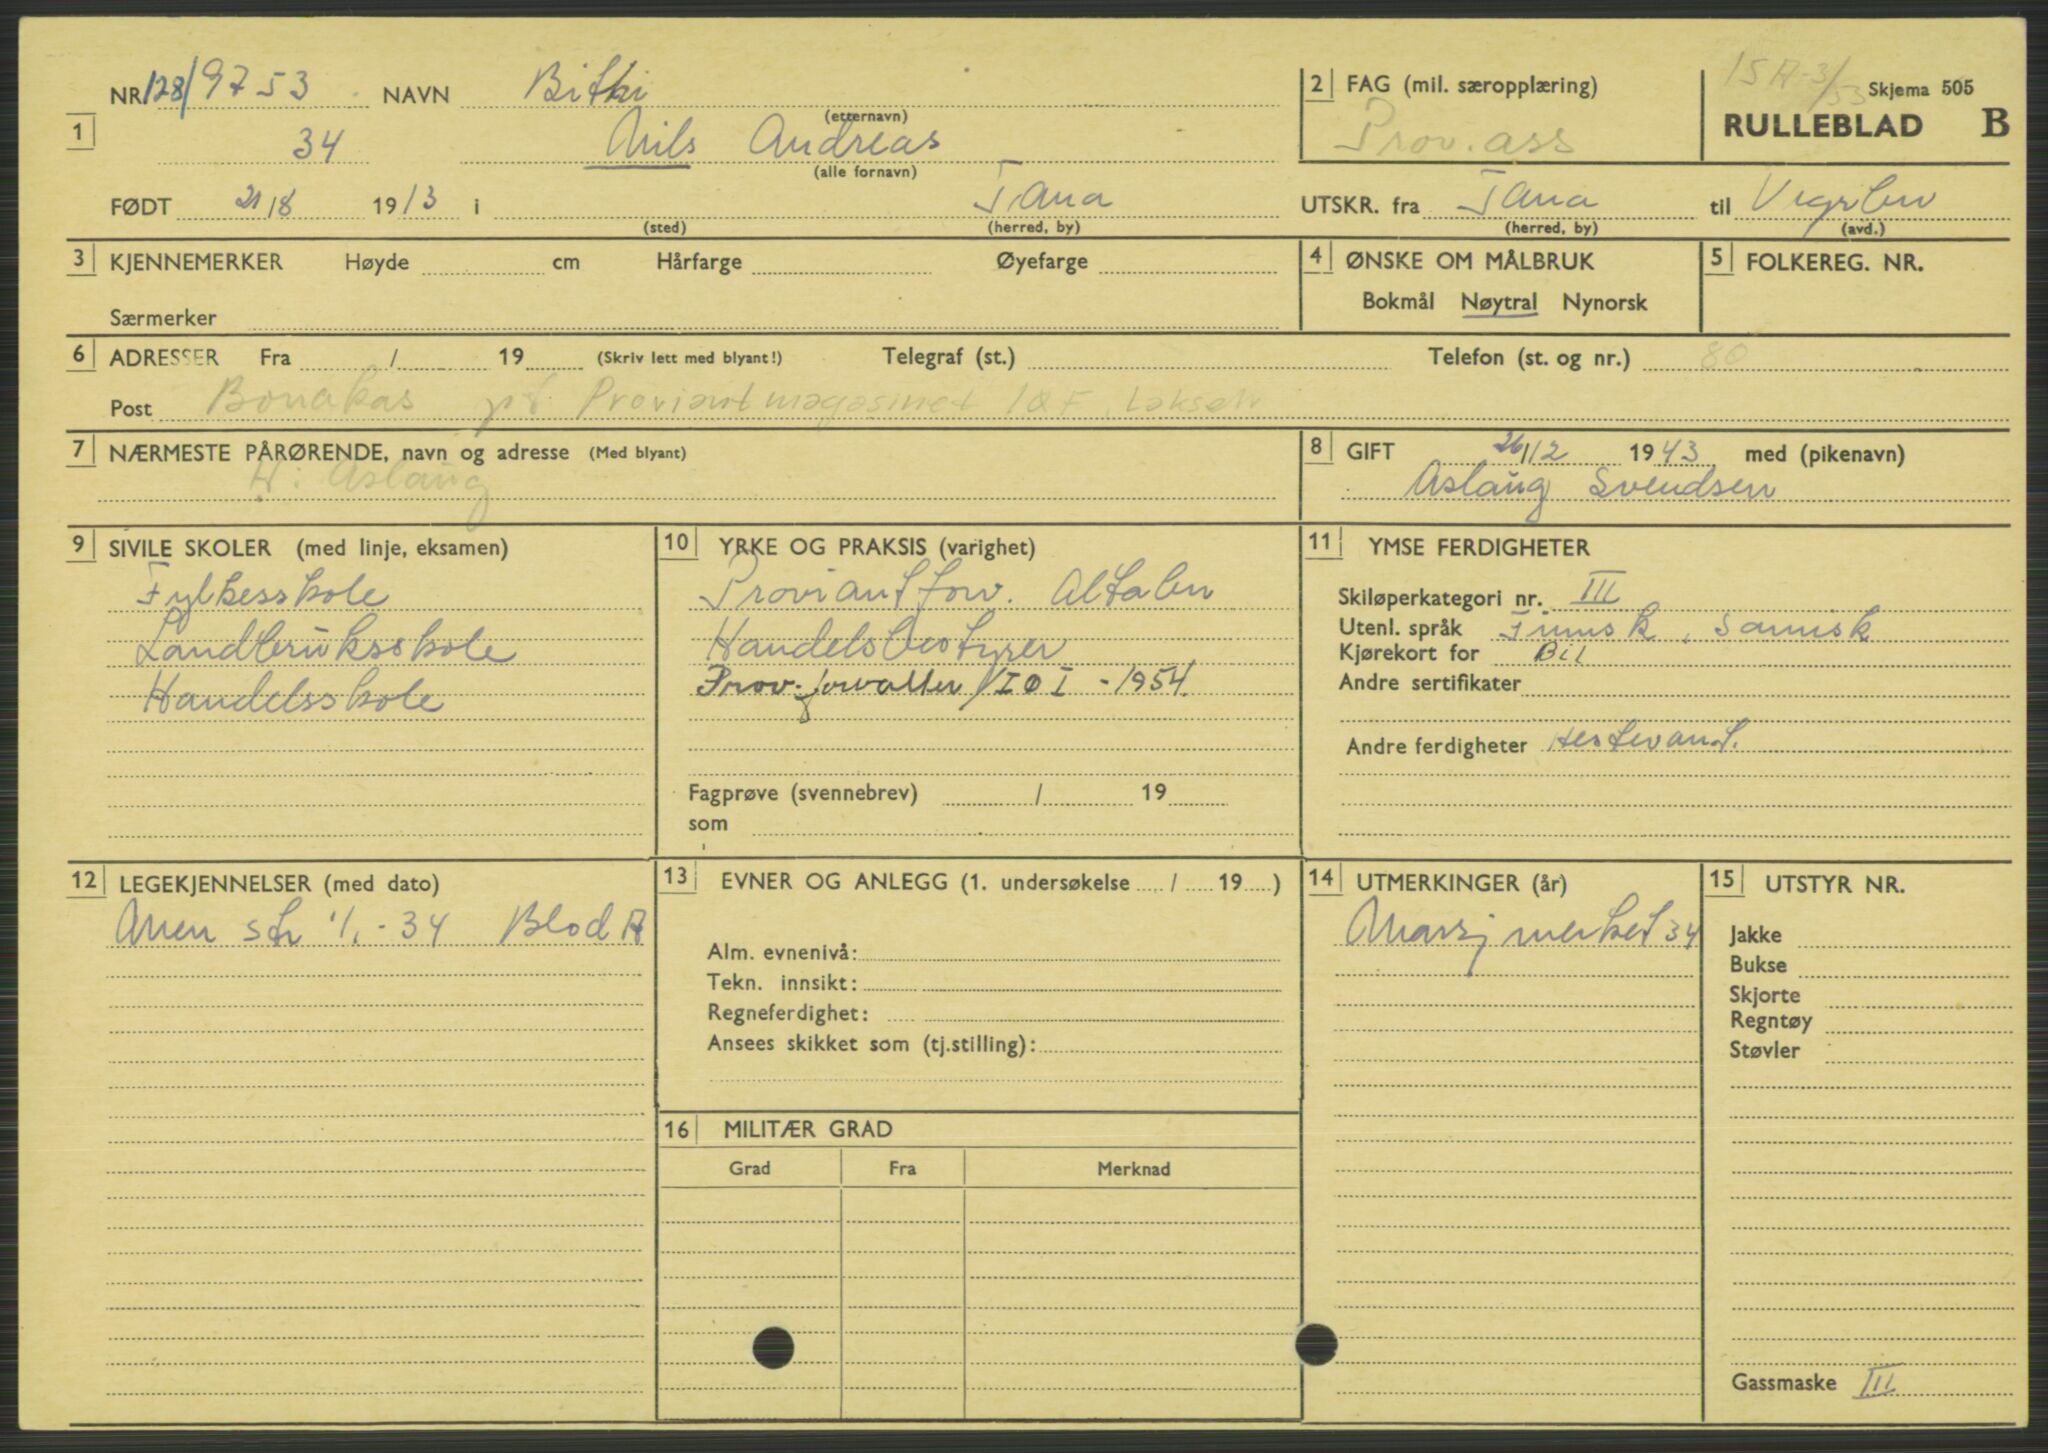 NR 128/9753 NAVN Bitti (etternavn)
1 34 Nils Andreas (alle fornavn)
FØDT 21/8 1913 i Tana (sted) (herred, by)
2 FAG (mil. særopplæring)
Prov. ass
15 A-3/53 Skjema 505
RULLEBLAD B
UTSKR. fra Tana til
(herred, by) (avd.)
3 KJENNEMERKER Høyde cm Hårfarge Øyefarge
Særmerker
4 ØNSKE OM MÅLBRUK
Bokmål Nøytral Nynorsk
5 FOLKEREG. NR.
6 ADRESSER Fra / 19 (Skriv lett med blyant!) Telegraf (st.) Telefon (st. og nr.) 80
Post Bonakas Proviantmagasinet IØF, Lakselv
7 NÆRMESTE PÅRØRENDE, navn og adresse (Med blyant)
H: Aslaug
8 GIFT 26/12 1943 med (pikenavn)
Aslaug Svendsen
9 SIVILE SKOLER (med linje, eksamen)
Fylkesskole
Landbruksskole
Handelsskole
10 YRKE OG PRAKSIS (varighet)
Proviantforv. Altabn
Handelsbestyrer
Prov. forvalter IØI - 1954.
Fagprøve (svennebrev) / 19
som
11 YMSE FERDIGHETER
Skiløperkategori nr. III
Utenl. språk Finnsk, Samisk
Kjørekort for Bil
Andre sertifikater
Andre ferdigheter Hestevant.
12 LEGEKJENNELSER (med dato)
-34 Blod A
13 EVNER OG ANLEGG (1. undersøkelse / 19 )
Alm. evnenivå:
Tekn. innsikt:
Regneferdighet:
Ansees skikket som (tj.stilling):
14 UTMERKINGER (år)
Marsjmerket 34
15 UTSTYR NR.
Jakke
Bukse
Skjorte
Regntøy
Støvler
Gassmaske III
16 MILITÆR GRAD
Grad Fra Merknad